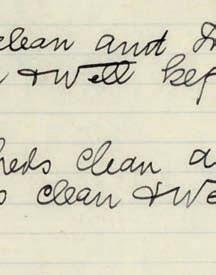 clean and
& Well kep
heds clean a
clean & We